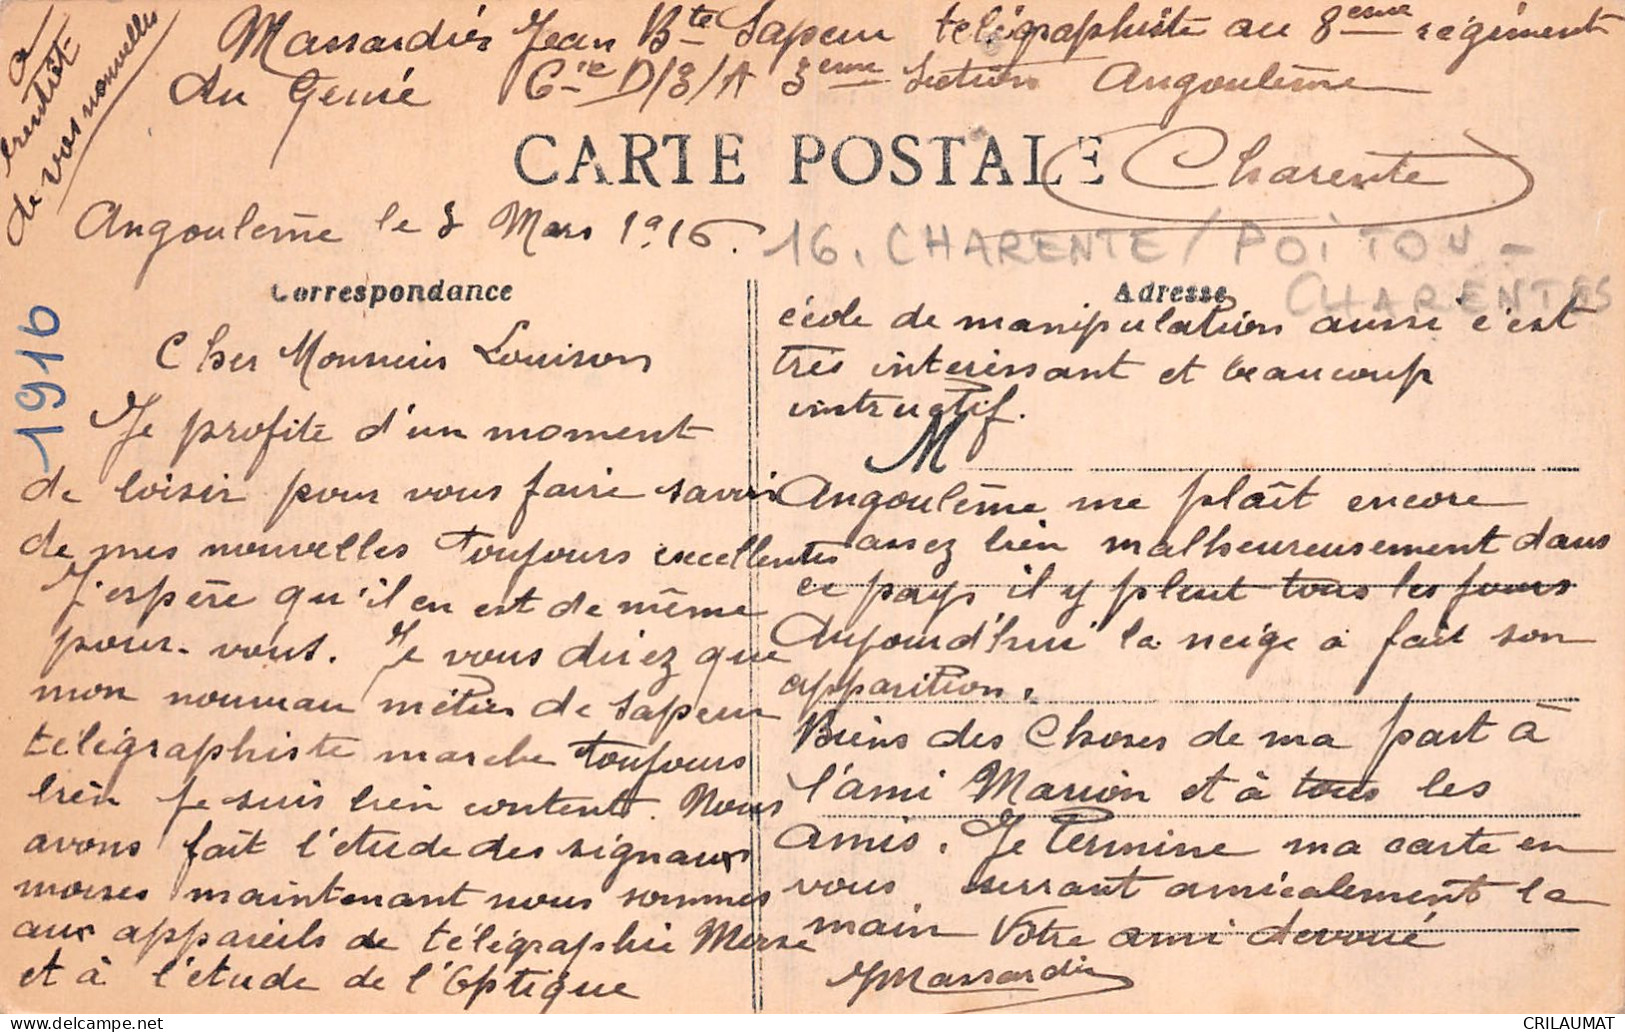 a
bientôt
de vos nouvelles
Massardiés Jean Bte Sapeur télégraphiste au 8eme régiment
du Génie Cie D/3/A 3eme Section Angoulême
CARTE POSTALE
Charente
Angoulême le 3 Mars 1916.
16. CHARENTE / POITOU -
CHARENTES
1916
Correspondance
Cher Monsieur Louison
Je profite d'un moment
de loisir pour vous faire savoir
de mes nouvelles toujours excellentes
J'espère qu'il en est de même
pour vous. Je vous direz que
mon nouveau métier de Sapeur
télégraphiste marche toujours
bien Je suis bien content. Nous
avons fait l'étude des signaux
morses maintenant nous sommes
aux appareils de télégraphie Morse
et à l'étude de l'Optique
Adresse
école de manipulation aussi c'est
très interessant et beaucoup
instructif.
M
Angoulême me plaît encore
assez bien malheureusement dans
ce pays il y pleut tous les jours
Aujourd'hui la neige a fait son
apparition.
Biens des Choses de ma part à
l'ami Marion et à tous les
amis. Je termine ma carte en
vous serrant amicalement la
main Votre ami dévoué
JMassardié
CRILAUMAT